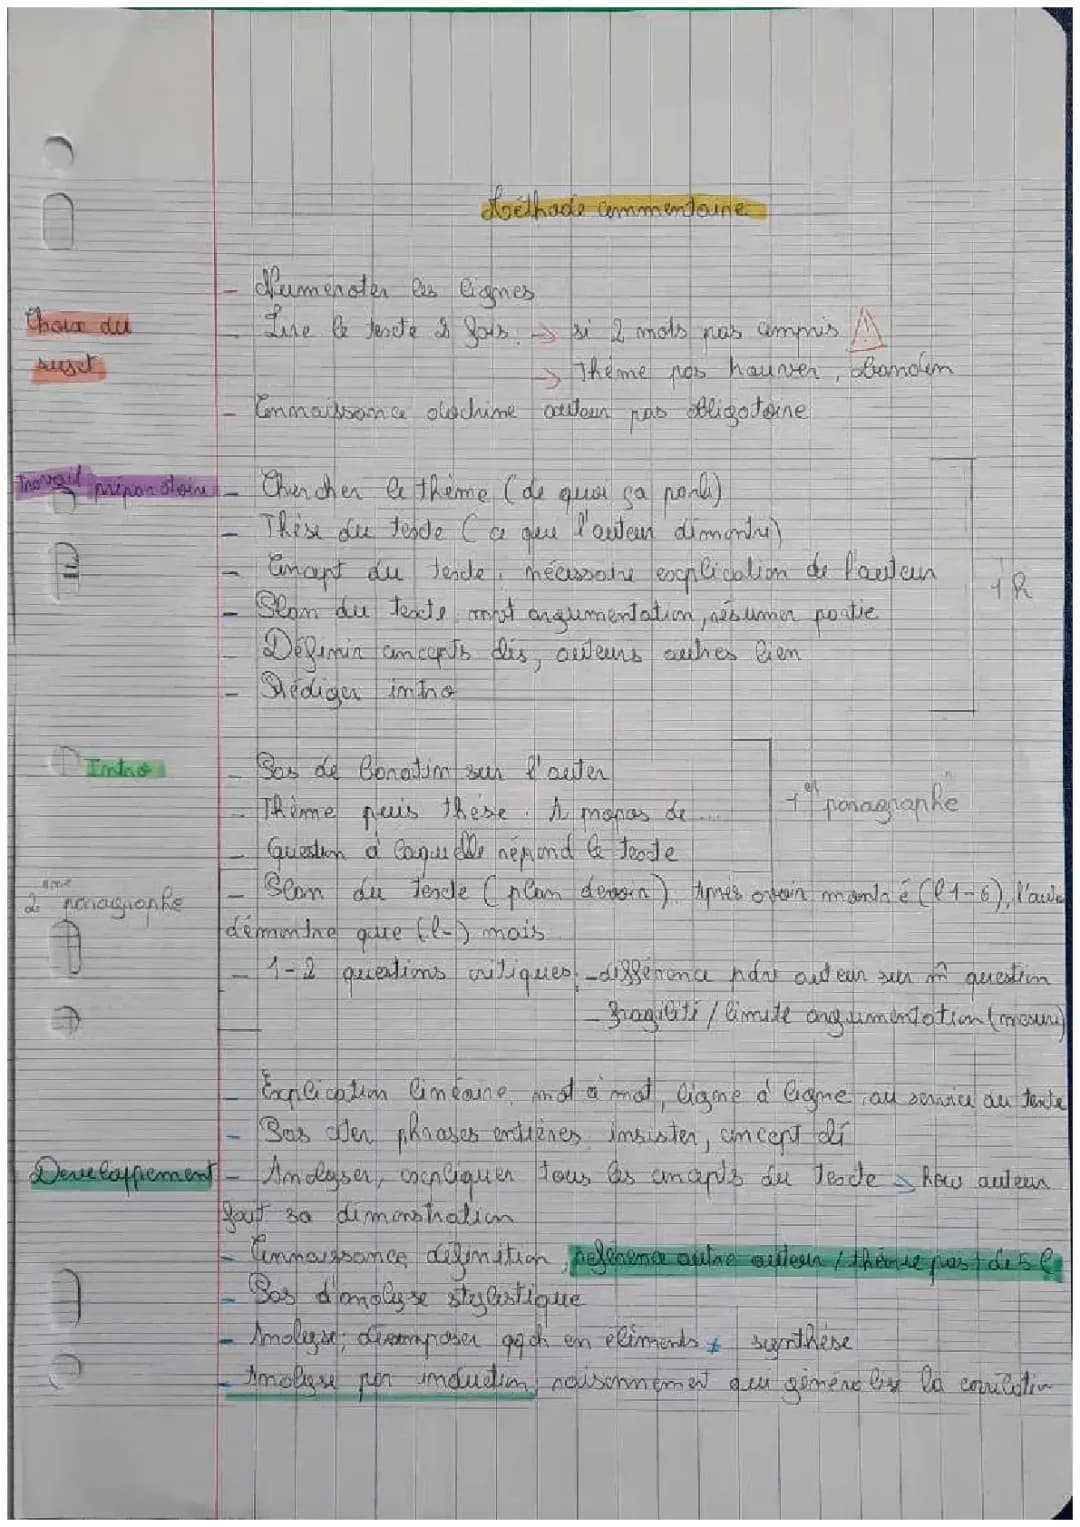 Méthode commentaire
- Numéroter les lignes
Choix du sujet
- Lire le texte 2 fois. → si 2 mots pas compris ⚠
→ Thème pas trouver, abandon
- Connaissance doctrine auteur pas obligatoire
Travail préparatoire
- Chercher le thème (de quoi ça parle)
- Thèse du texte (ce que l'auteur démontre)
- Concept du texte, nécessaire explication de l'auteur
- Plan du texte, mot argumentation, résumer partie
1 h
- Définir concepts clés, auteurs autres lien
- Rédiger intro
Intro
- Pas de baratin sur l'auter
- Thème puis thèse. A propos de ....
1er paragraphe
- Question à laquelle répond le texte
2ème paragraphe
- Plan du texte (plan devoir). Après avoir montré (l 1-6), l'aute
démontre que (l-) mais
- 1-2 questions critiques: - différence pdv auteur sur m̂ question
- Fragilité / limite argumentation (mesuré)
- Explication linéaire, mot à mot, ligne à ligne, au service du texte
- Pas citer phrases entières, insister, concept clé
Developpement
- Analyser, expliquer tous les concepts du texte → How auteur
fait sa démonstration
- Connaissance, définition, référence autre auteur / théorie pas + de 5 l
- Pas d'analyse stylistique
- Analyse: décomposer qqch en éléments ≠ synthèse
- Analyse par induction, raisonnement qui généralise la corrélation